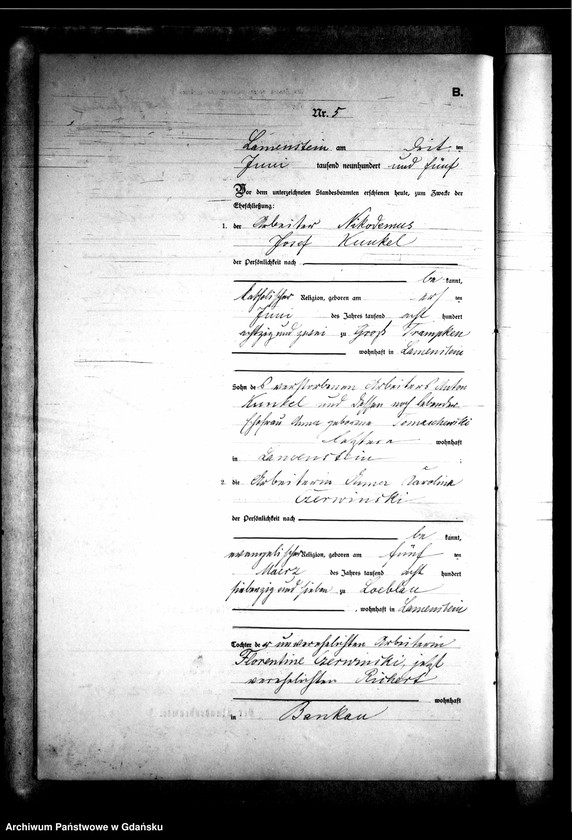 B.
Nr. 5
Lamenstein am Drit ten
Juni tausend neunhundert und fünf
Vor dem unterzeichneten Standesbeamten erschienen heute, zum Zwecke der
Eheschließung:
1. der Arbeiter Nikodemus
Josef Kunkel
der Persönlichkeit nach
be kannt,
katholischer Religion, geboren am ten
Juni des Jahres tausend acht hundert
achtzig und zwei zu Groß Trampken
wohnhaft in Lamenstein
Sohn des verstorbenen Arbeiters Anton
Kunkel und dessen noch lebender
Ehefrau Anna geborene Tomaschewski
letztere wohnhaft
in Lamenstein
2. die Arbeiterin Karolina
Czerwinski
der Persönlichkeit nach
be kannt,
evangelischer Religion, geboren am fünf ten
Maerz des Jahres tausend acht hundert
siebenzig und sieben zu Loeblau
, wohnhaft in Lamenstein
Tochter der unverehelichten Arbeiterin
Florentine Czerwinski, jetzt
verehelichten Richert
wohnhaft
in Bankau
Archiwum Państwowe w Gdańsku